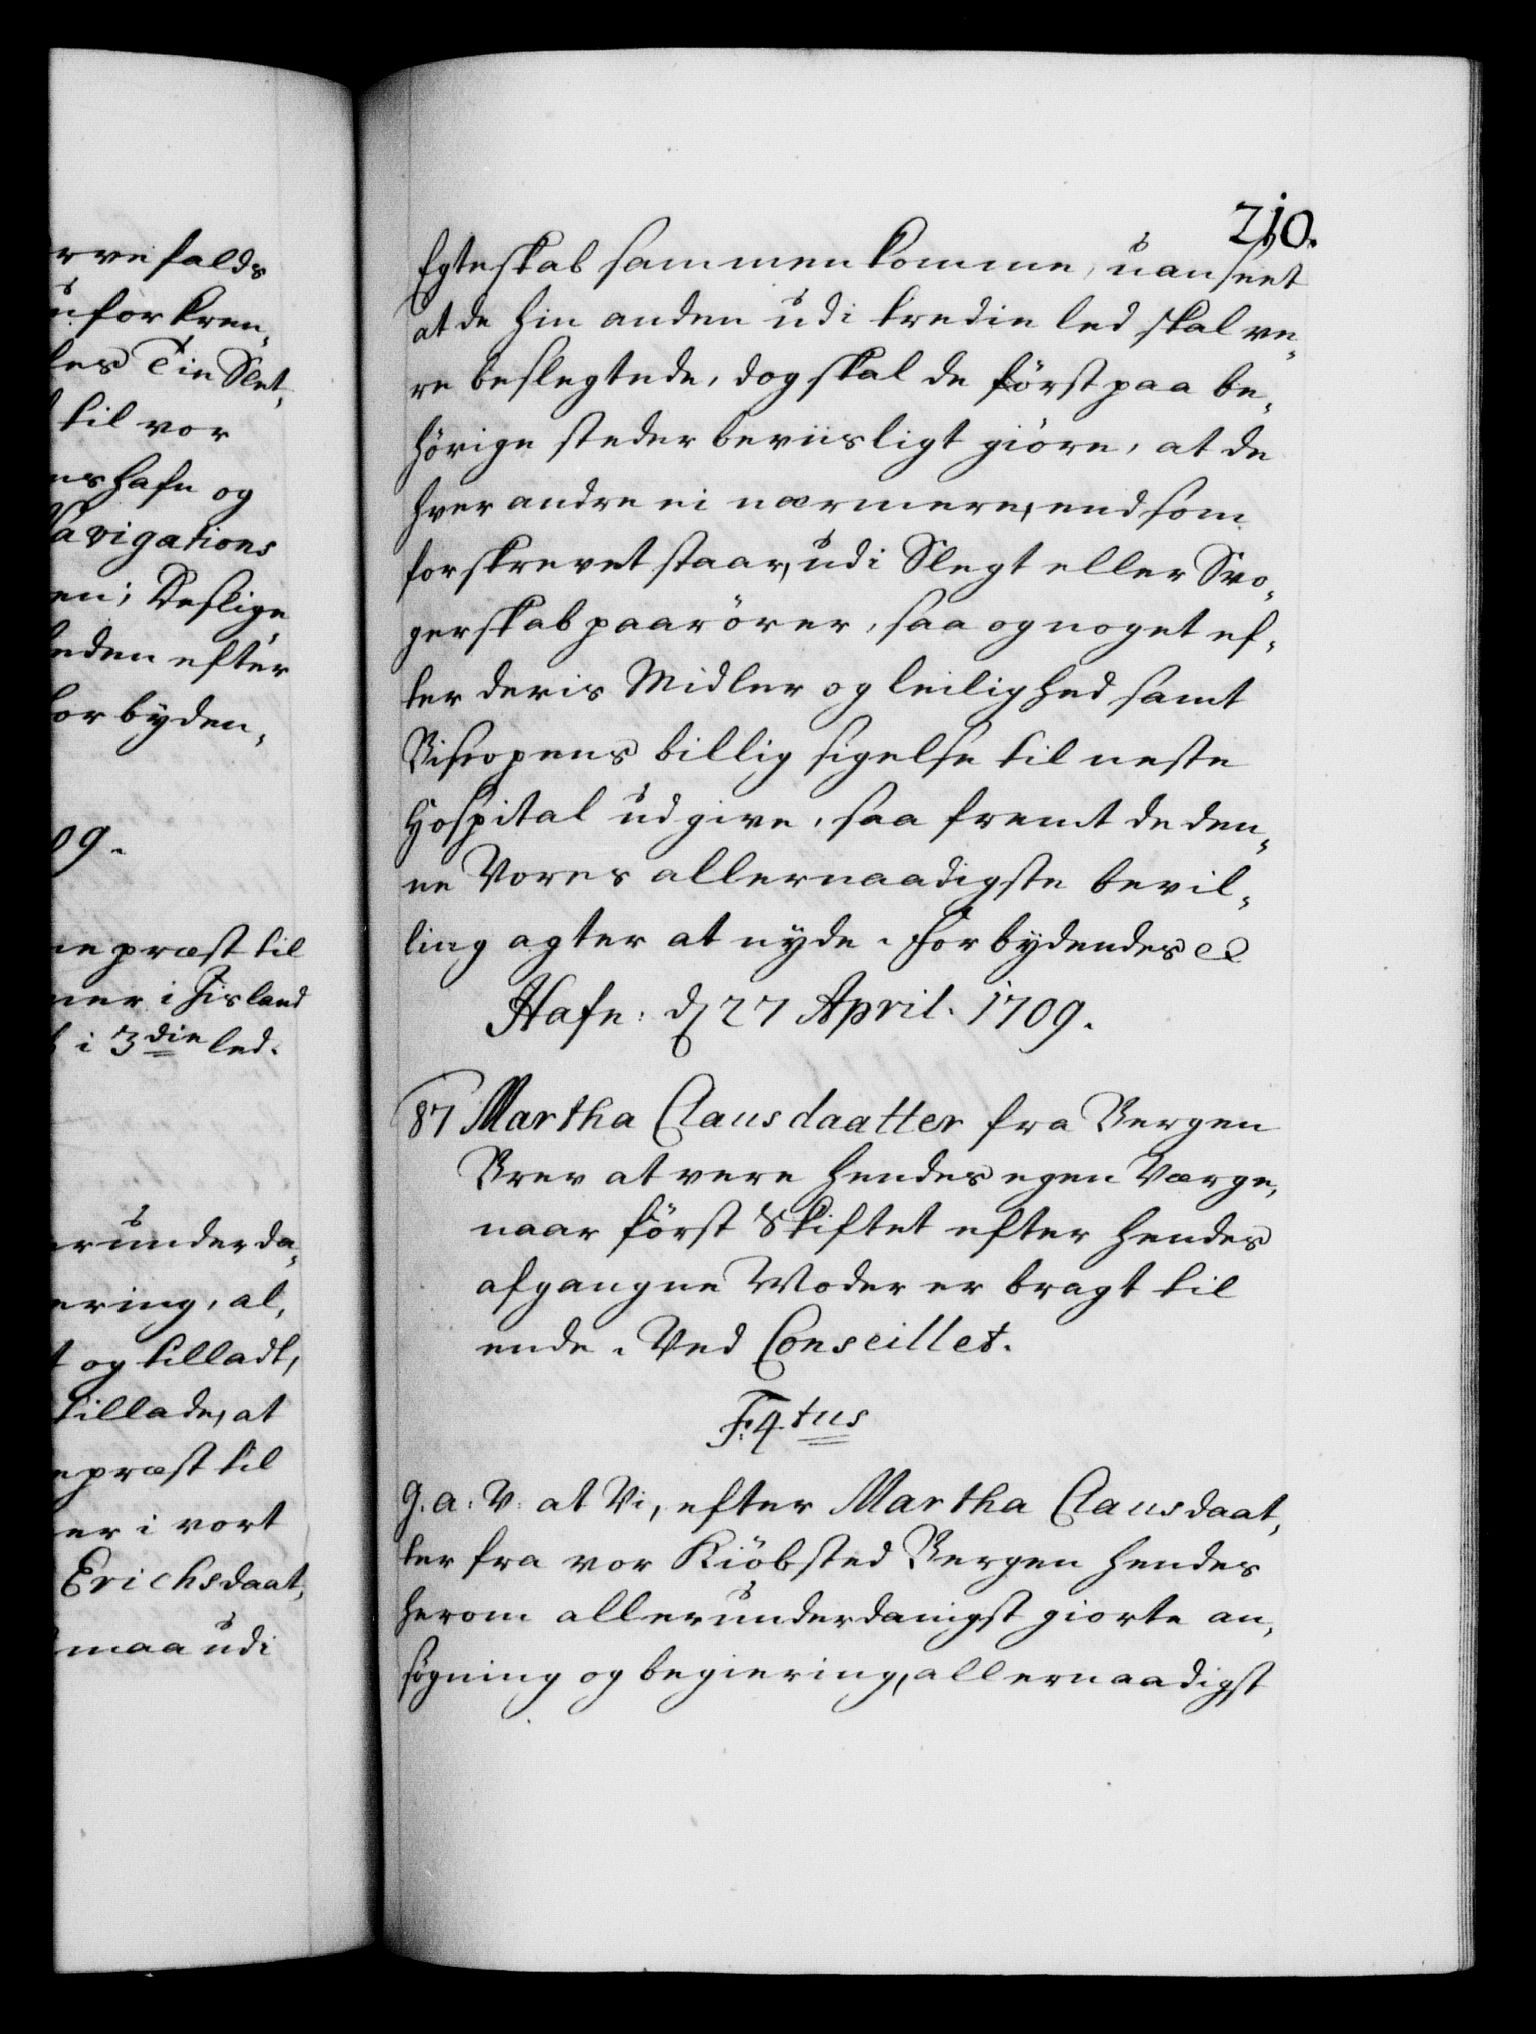 rve falds
uforkren¸
les Tie Slet¸
til vor
ns hafn og
Navigations
en; Deslige
heden efter
forbÿden¸
09.
ne præst til
ner i Jisland
i 3die led.
erunderda¸
ering, al¸
t og tilladt,
tillade, at
epræst til
er i vort
Erichsdaat¸
maa udi
210.
Egteskab sammenkomme, uanseet
at de hin anden udi tredie led skal ve¸
re beslegtede, dog skal de först paa be¸
hörige steder beviisligt giöre, at de
hverandre ei nærmere, end som
forskrevet staar, udi Slegt eller Svo¸
gerskab paarörer, saa og noget ef¸
ter deris Midler og leilighed samt
Biscopens billig sigelse til neste
Hospital udgive, saa fremt de den¸
ne Vores allernaadigste bevil¸
ling agter at nyde. Forbydendes &c
Hafn: d 27 April. 1709.
87 Martha Clausdaatter fra Bergen
Brev at vere hendes egen Værge,
naar först Skiftet efter hendes
afgangne Moder er bragt til
ende. Ved Conseillet.
F: 4.tus
G. a: V: at Vi, efter Martha Clausdaat¸
ter fra vor Kiöbsted Bergen hendes
herom allerunderdanigst giorte an¸
sögning og begiering, allernaadigst